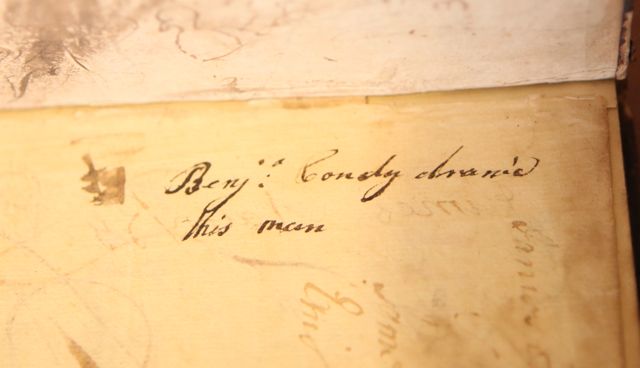 Benj.ª Condy draw'd
this man